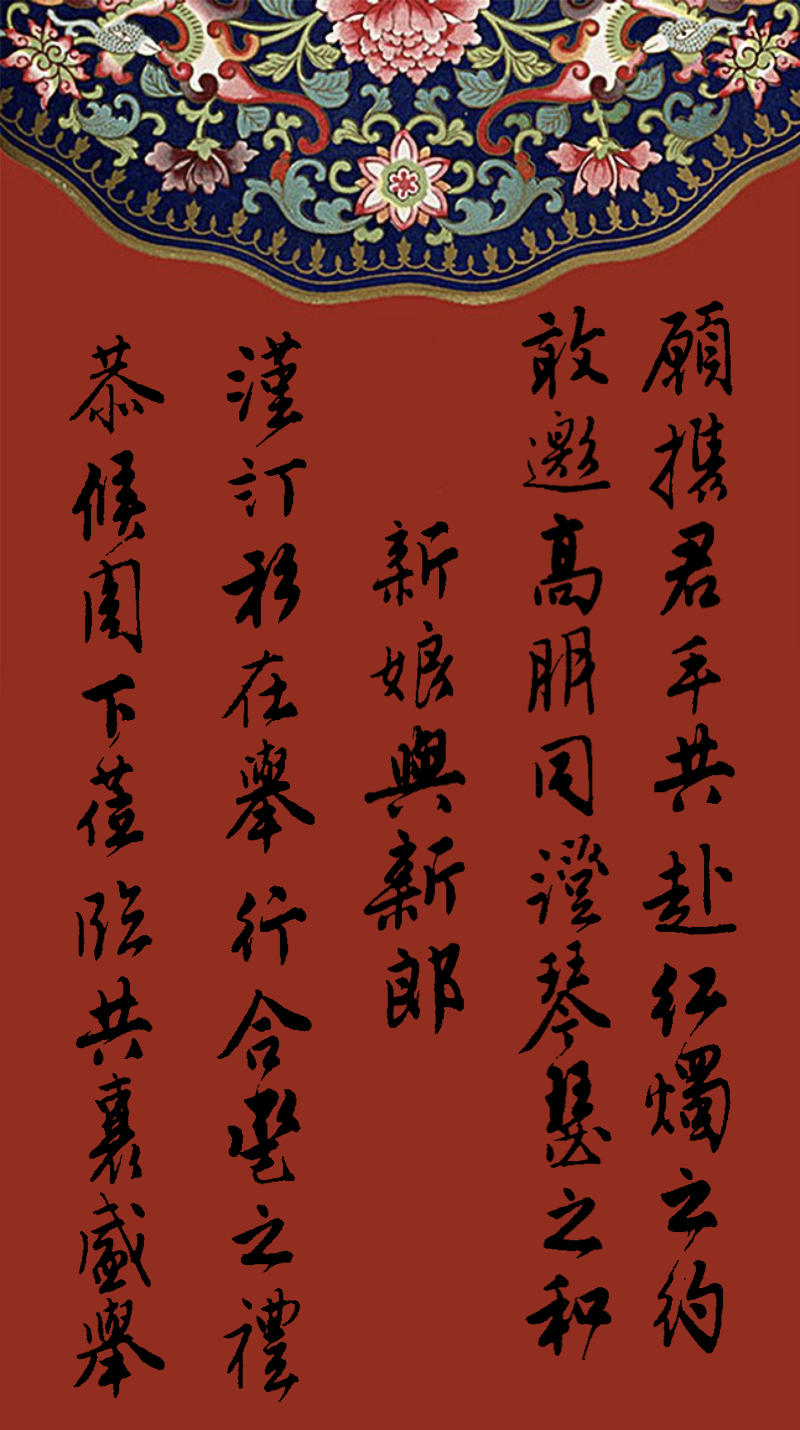 願携君手共赴红燭之約
敢邀高朋同證琴瑟之和
新娘與新郎
謹訂於在舉行合巹之禮
恭候閣下蒞臨共襄盛舉